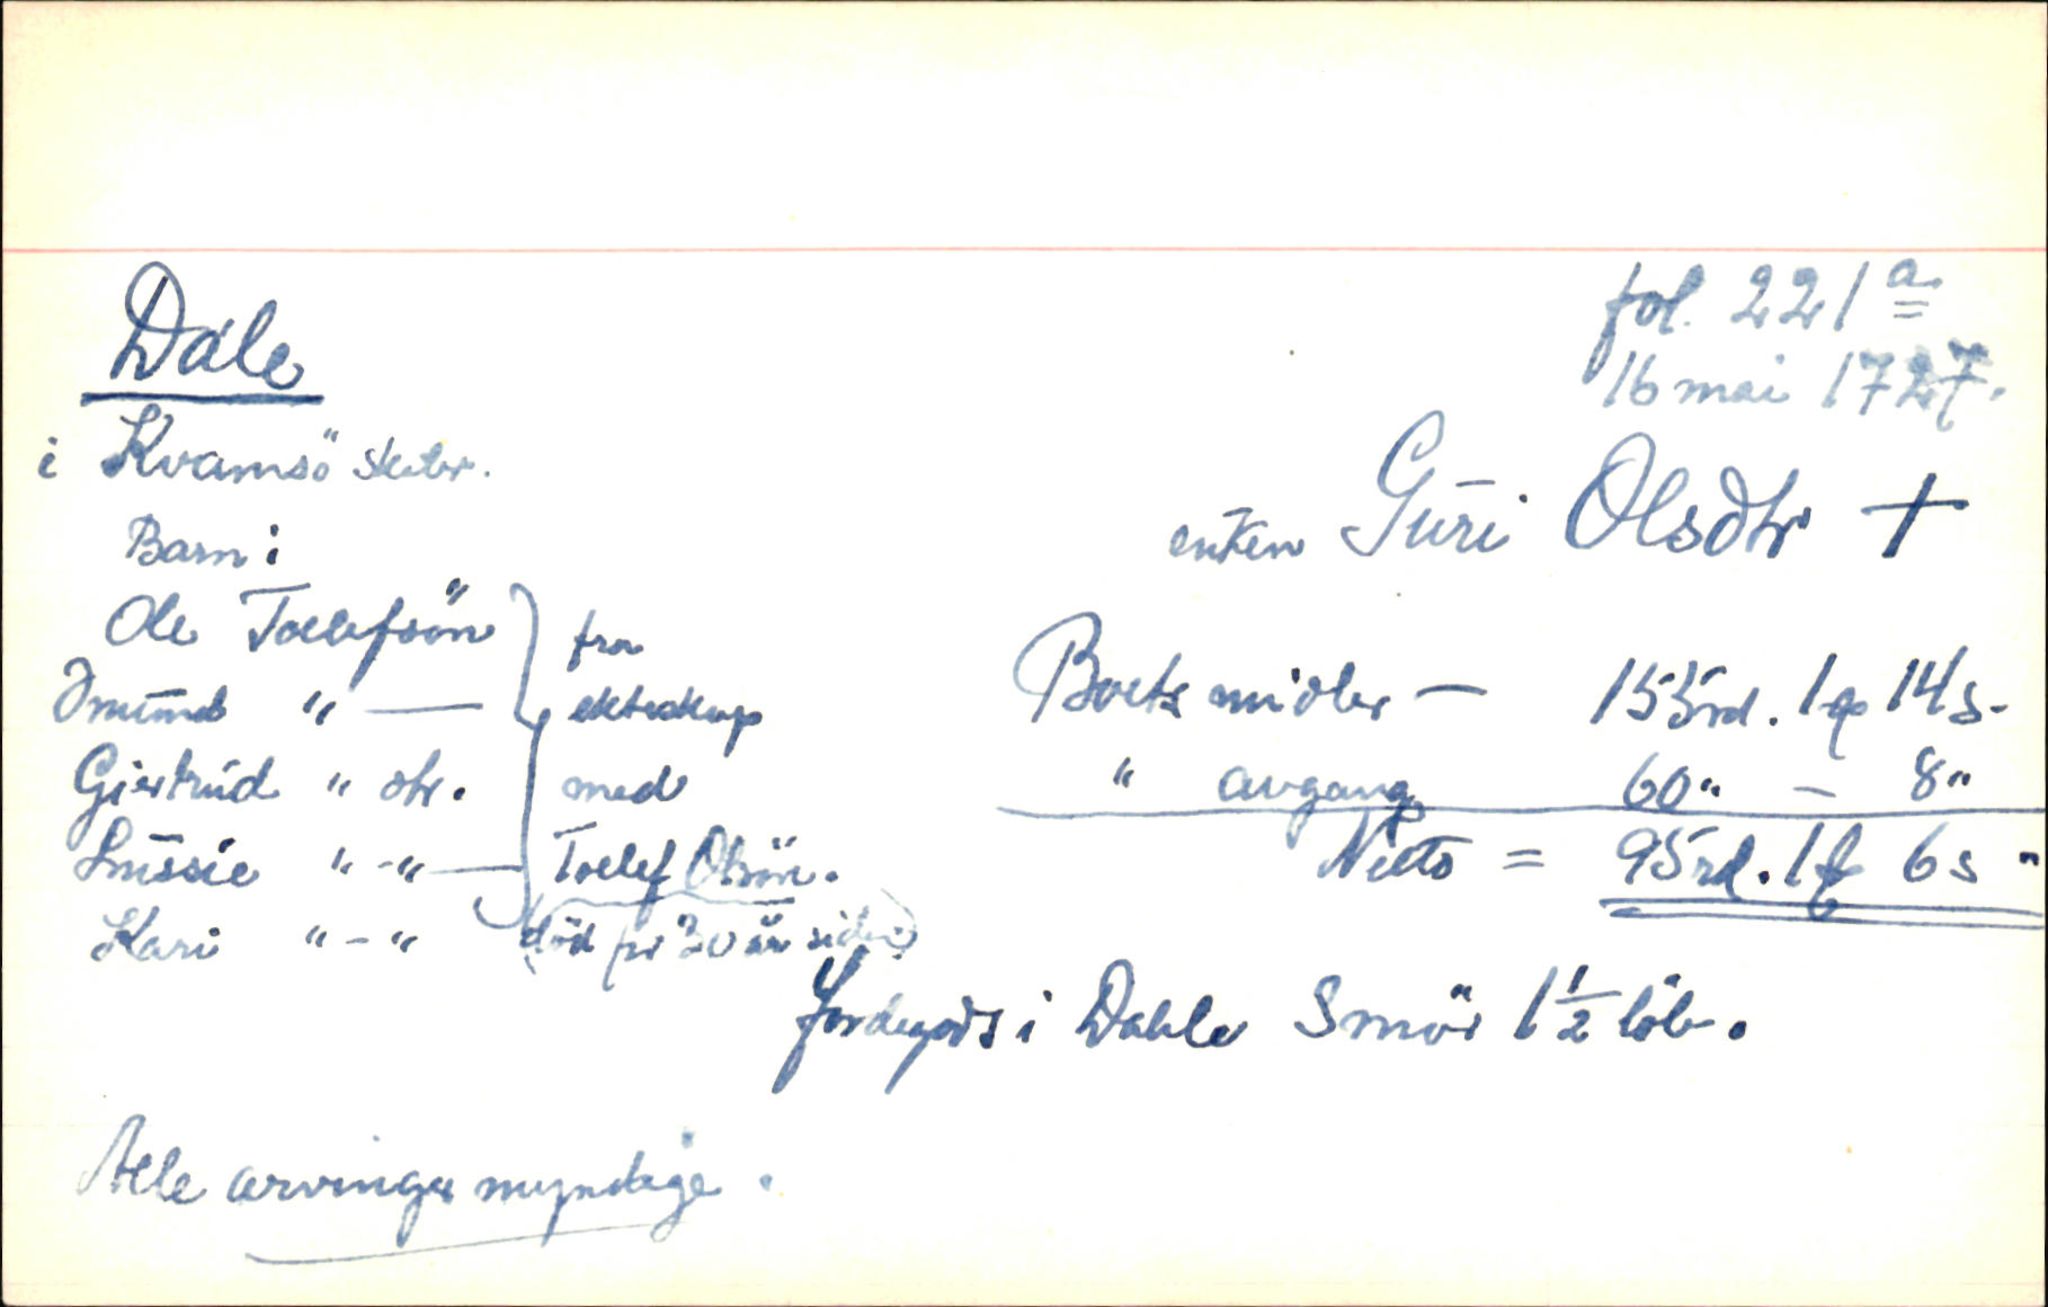 fol. 221 a.
Dale
16 mai 1727.
i Kvamsö skibr.
enken Guri Olsdtr +
Barn:
Ole Toelefsön
fra
Omund " —
ekteskap
Gjertrud " dtr.
med
Lussie " - " —
Toelef Olsön.
Kari " - "
(död for 30 år siden)
Boets midler — 155 rd. 1 q 14 s.
" avgang 60 " — 8 "
Netto = 95 rd. 1 q 6 s "
Jordegods i Dahle Smör 1 1/2 löb.
Alle arvinger myndige.